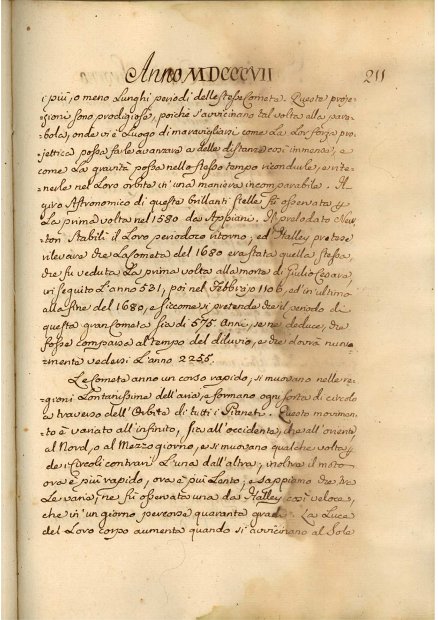 Anno MDCCCVII 211
i più, o meno Lunghi periodi delle stesse Comete. Queste proje-
zioni sono prodigiose, poichè s'avvicinano tal volta alla para-
bola, onde vi è Luogo di maravigliarsi come La Lor forza pro-
jettrica possa farle avanzare a delle distanze così immense, e
come La gravità possa nello stesso tempo ricondurle, e rite-
nerle nel Loro orbite in una maniera incomparabile. Il
giro Astronomico di queste brillanti stelle fù osservato p
La prima volta nel 1580 da Appiani. Il prelodato New-
ton Stabilì il Loro periodico ritorno; ed Halley pretese
rilevare che La Cometa del 1680 era stata quella stessa,
che fu veduta La prima volta alla morte di Giulio Cesare,
L'anno 531, poi nel Febbrajo 1106, ed in ultimo
alla fine del 1680, e siccome si pretende che il periodo di
questa gran Cometa sia di 575 Anni, se ne deduce, che
fosse comparsa al tempo del diluvio, e che dovrà nuova-
mente vedersi L'anno 2255.
Le Comete anno un corso rapido, si muovano nelle re-
gioni Lontanissime dell'aria, e formano ogni sorta di circolo
a traverso dell'Orbite di tutti i Pianeti. Questo movimen-
to è variato all'infinito, sia all'occidente, che all'oriente,
al Nord, o al Mezzo giorno, e si muovano qualche volta p
de Circoli contrari L'una dall'altra; inoltre il moto
ora è più rapido, ora è più Lento; e sappiamo che tra
Le varie ne fù osservata una da Halley così veloce,
che in un giorno percorse quaranta gradi. La Luce
del Loro corpo aumenta quando si avvicinano al Sole